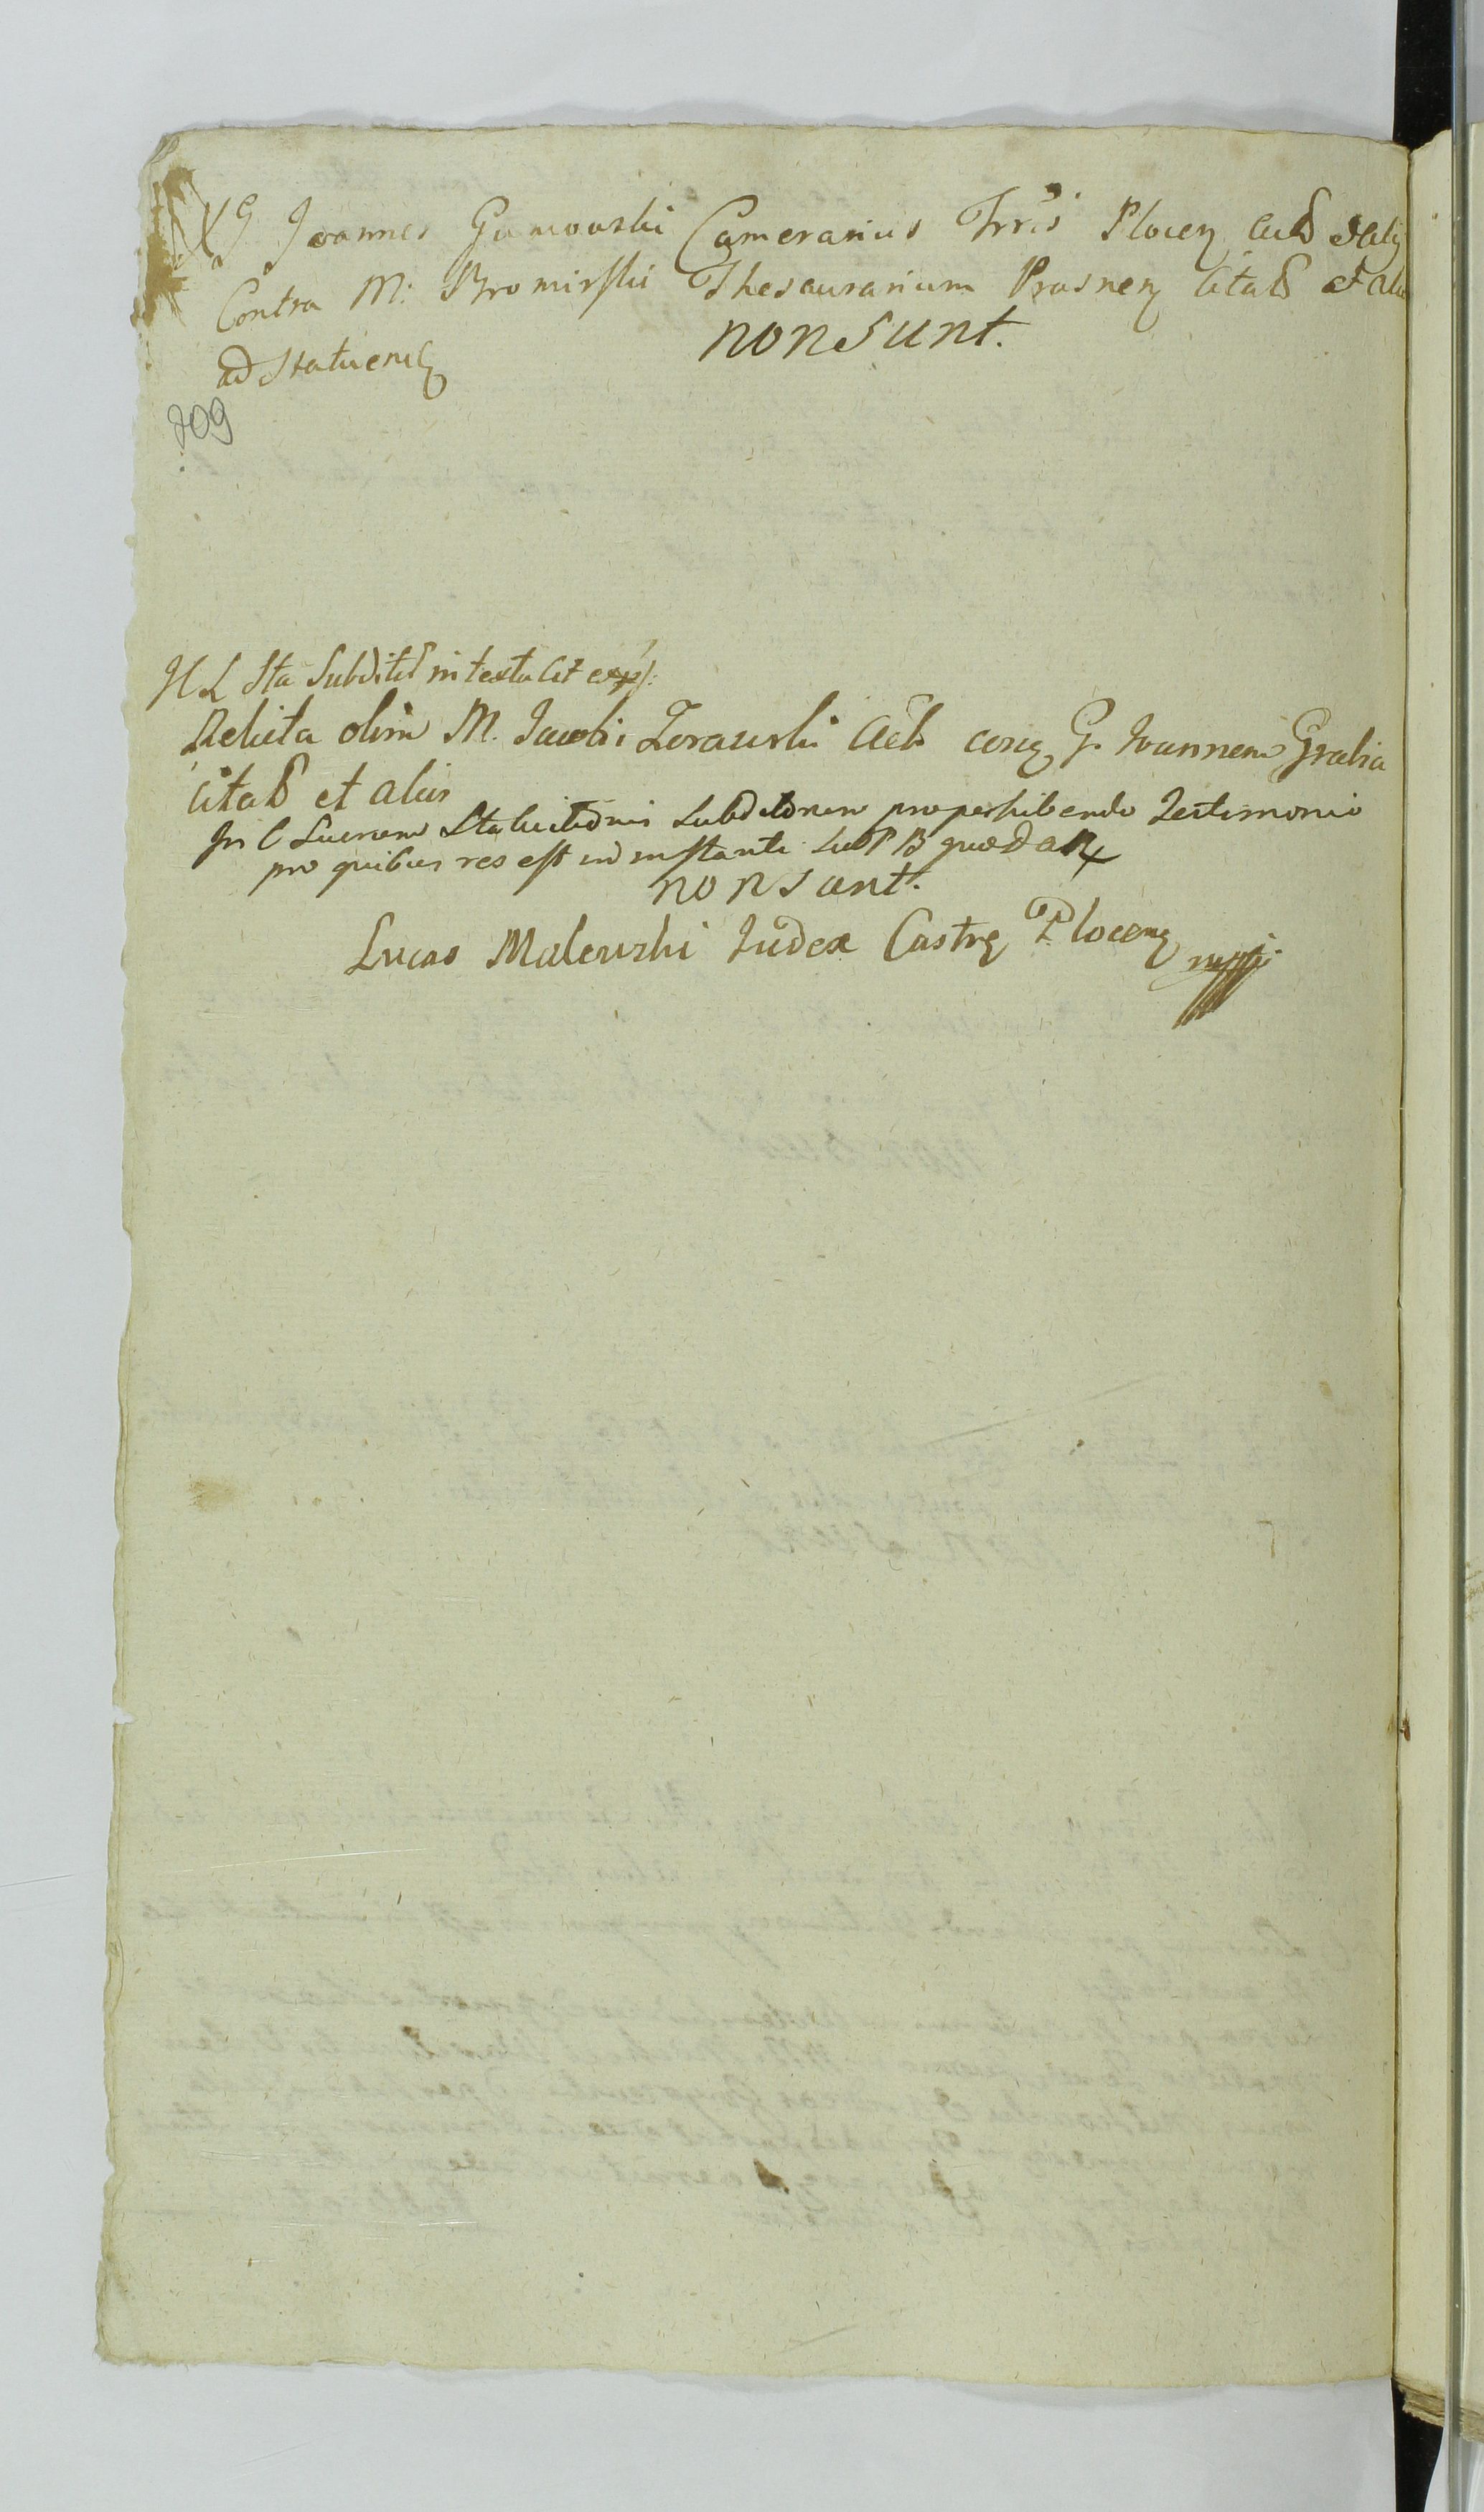 Joannes Gumowski Camerarius Trris Plocen Actb et alij
Contra M: Bromirski Thesaurarium Prasnen Citatb et alios
ad statuend
non sunt.
209
H L Sta Subditt in textu Cit exp:
Relicta olim M. Jacobi Zorawski Actb cong G. Ioannem Grabia
Citatb et alios
In C Lucrum Statuitionis Subditorum pro perhibendo Testimonio
pro quibus res est in instanti sub P B quedam
non sunt.
Lucas Malewski Iudex Castrę Plocenę mppę